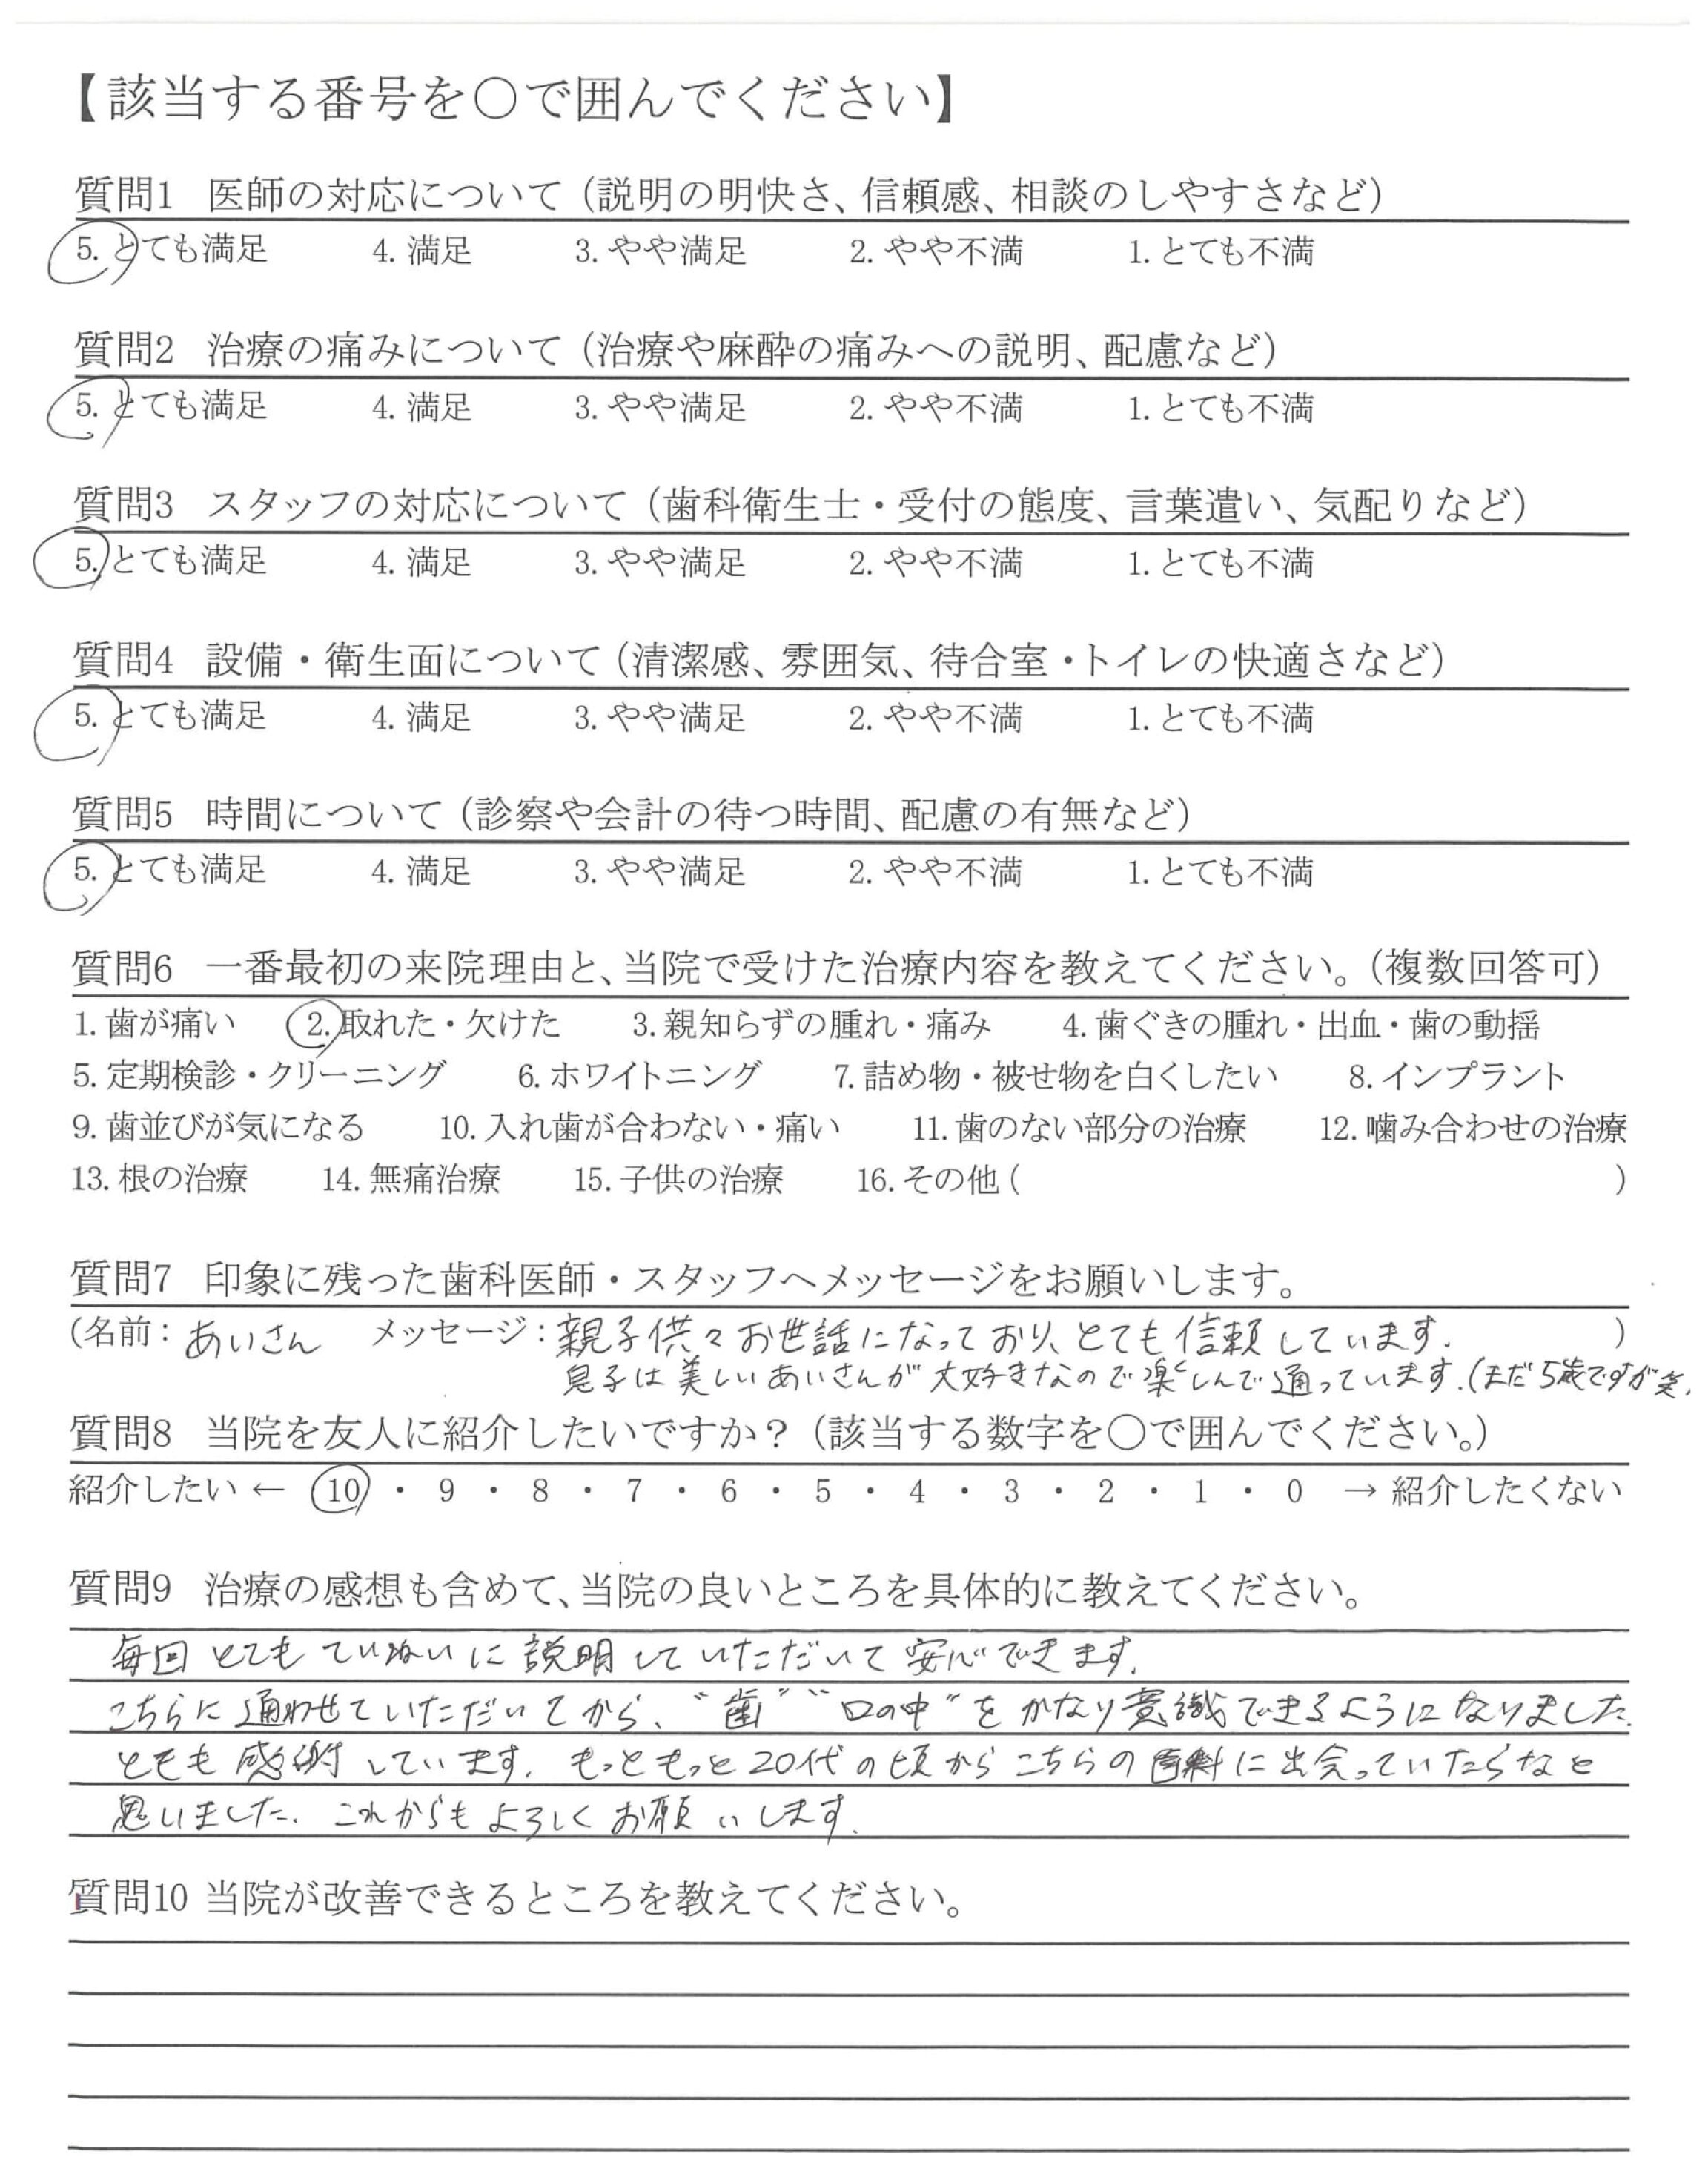 【該当する番号を○で囲んでください】
質問1 医師の対応について（説明の明快さ、信頼感、相談のしやすさなど）
5. とても満足 4. 満足 3. やや満足 2. やや不満 1. とても不満
質問2 治療の痛みについて（治療や麻酔の痛みへの説明、配慮など）
5. とても満足 4. 満足 3. やや満足 2. やや不満 1. とても不満
質問3 スタッフの対応について（歯科衛生士・受付の態度、言葉遣い、気配りなど）
5. とても満足 4. 満足 3. やや満足 2. やや不満 1. とても不満
質問4 設備・衛生面について（清潔感、雰囲気、待合室・トイレの快適さなど）
5. とても満足 4. 満足 3. やや満足 2. やや不満 1. とても不満
質問5 時間について（診察や会計の待つ時間、配慮の有無など）
5. とても満足 4. 満足 3. やや満足 2. やや不満 1. とても不満
質問6 一番最初の来院理由と、当院で受けた治療内容を教えてください。（複数回答可）
1. 歯が痛い 2. 取れた・欠けた 3. 親知らずの腫れ・痛み 4. 歯ぐきの腫れ・出血・歯の動揺
5. 定期検診・クリーニング 6. ホワイトニング 7. 詰め物・被せ物を白くしたい 8. インプラント
9. 歯並びが気になる 10. 入れ歯が合わない・痛い 11. 歯のない部分の治療 12. 噛み合わせの治療
13. 根の治療 14. 無痛治療 15. 子供の治療 16. その他（ ）
質問7 印象に残った歯科医師・スタッフへメッセージをお願いします。
（名前：あいさん メッセージ：親子供々お世話になっており、とても信頼しています. ）
息子は美しいあいさんが大好きなので楽しんで通っています.（まだ5歳ですが笑
質問8 当院を友人に紹介したいですか？（該当する数字を○で囲んでください。）
紹介したい ← 10 ・ 9 ・ 8 ・ 7 ・ 6 ・ 5 ・ 4 ・ 3 ・ 2 ・ 1 ・ 0 → 紹介したくない
質問9 治療の感想も含めて、当院の良いところを具体的に教えてください。
毎回とてもていねいに説明していただいて安心できます.
こちらに通わせていただいてから、“歯”“口の中”をかなり意識できるようになりました.
とても感謝しています. もっともっと20代の頃からこちらの歯科に出会っていたらなと
思いました. これからもよろしくお願いします.
質問10 当院が改善できるところを教えてください。